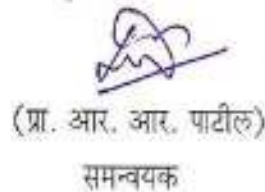 (प्रा. आर. आर. पाटील)
समन्वयक